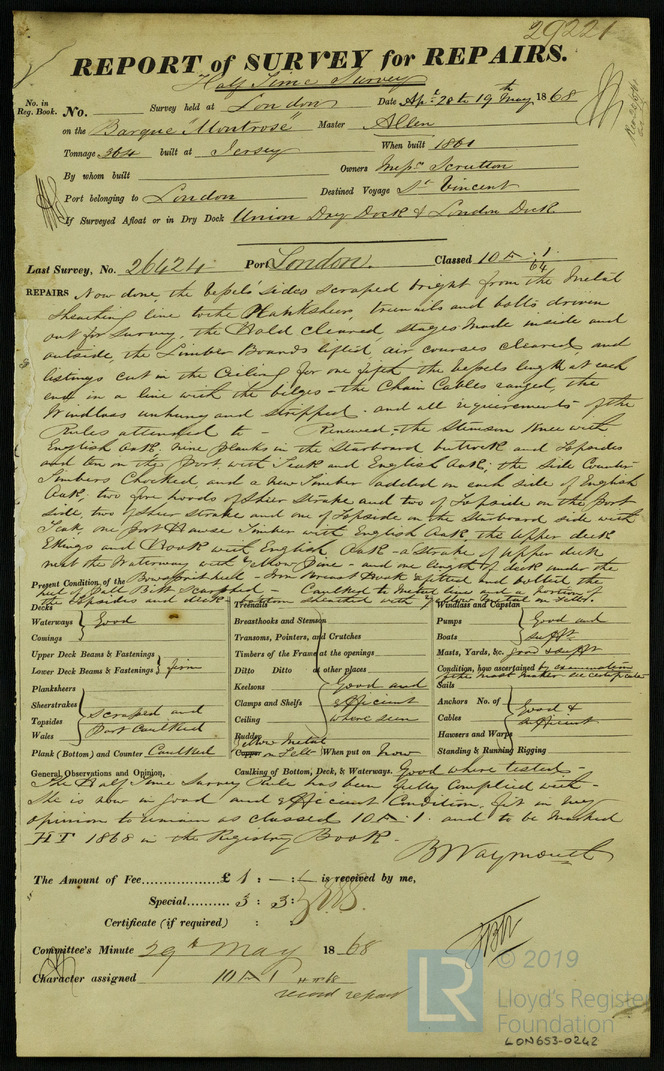 29221
REPORT of SURVEY for REPAIRS.
Half Time Survey
No. in Reg. Book. No. Survey held at London Date Apl. 28 to 19th May 1868
on the Barque "Montrose" Master Allen
Tonnage 364 built at Jersey When built 1861
By whom built Owners Messrs Scrutton
Port belonging to London Destined Voyage St Vincent
If Surveyed Afloat or in Dry Dock Union Dry Dock & London Dock
Last Survey, No. 26424 Port London. Classed 10 A 1 64
REPAIRS Now done, the vessel's sides scraped bright from the Metal
sheathing line to the Planksheer, treenails and bolts driven
out for survey, the Hold Cleared, stages made inside and
outside, the Limber Boards lifted, air courses cleared, and
listings cut in the Ceiling, for one fifth the vessels length at each
end in a line with the bilges - the Chain Cables ranged, the
Windlass unhung and stripped and all requirements of the
Rules attended to - Renewed, the Stemson Knee with
English Oak, nine planks in the Starboard buttock and Topsides
and ten on the Port, with Teak and English Oak; the Side Counter
Timbers Chocked, and a new Timber added on each side of English
Oak, two fore hoods of Sheer strake and two of Topside on the Port
side, two of Sheer strake and one of Topside on the Starboard side with
Teak, one Port Hawse Timber with English Oak, the Upper deck
Ekings and Hook with English Oak - a strake of Upper deck
next the Waterway with Yellow Pine - and one length of deck under the
heel of Bowsprit heel - Iron Breast Hook refitted and bolted the
Pall Bitt Scarphed - Caulked to Metal line and a portion of
the topsides and deck - bottom sheathed with Yellow Metal on Felt.
Present Condition of the
Decks
Waterways Good
Comings
Upper Deck Beams & Fastenings
Lower Deck Beams & Fastenings firm
Planksheers
Sheerstrakes scraped and
Topsides Part Caulked
Wales
Plank (Bottom) and Counter Caulked
Treenails
Breasthooks and Stemson
Transoms, Pointers, and Crutches
Timbers of the Frame at the openings
Ditto Ditto at other places
Keelsons good and
Clamps and Shelfs efficient
Ceiling where seen
Rudder
Yellow Metal
Copper on Felt When put on Now
Windlass and Capstan
Pumps Good and
Boats sufft
Masts, Yards, &c. good & sufft
Condition, how ascertained by examination
of the mast maker see certificate
Sails
Anchors No. of Good &
Cables efficient
Hawsers and Warps
Standing & Running Rigging
General Observations and Opinion, Caulking of Bottom, Deck, & Waterways. Good where tested -
The Half Time Survey Rule has been fully complied with -
She is now in good and efficient Condition, fit in my
opinion to remain as classed 10 A 1. and to be marked
HT 1868 in the Registry Book.
B Waymouth
The Amount of Fee.................£ 1 : - : - is received by me,
Special........... 3 : 3 :
Certificate (if required) :
Committee's Minute 29th May 1868
Character assigned 10 A 1 HT 68
record repair
LR
© 2019
Lloyd's Register
Foundation
LON653-0242